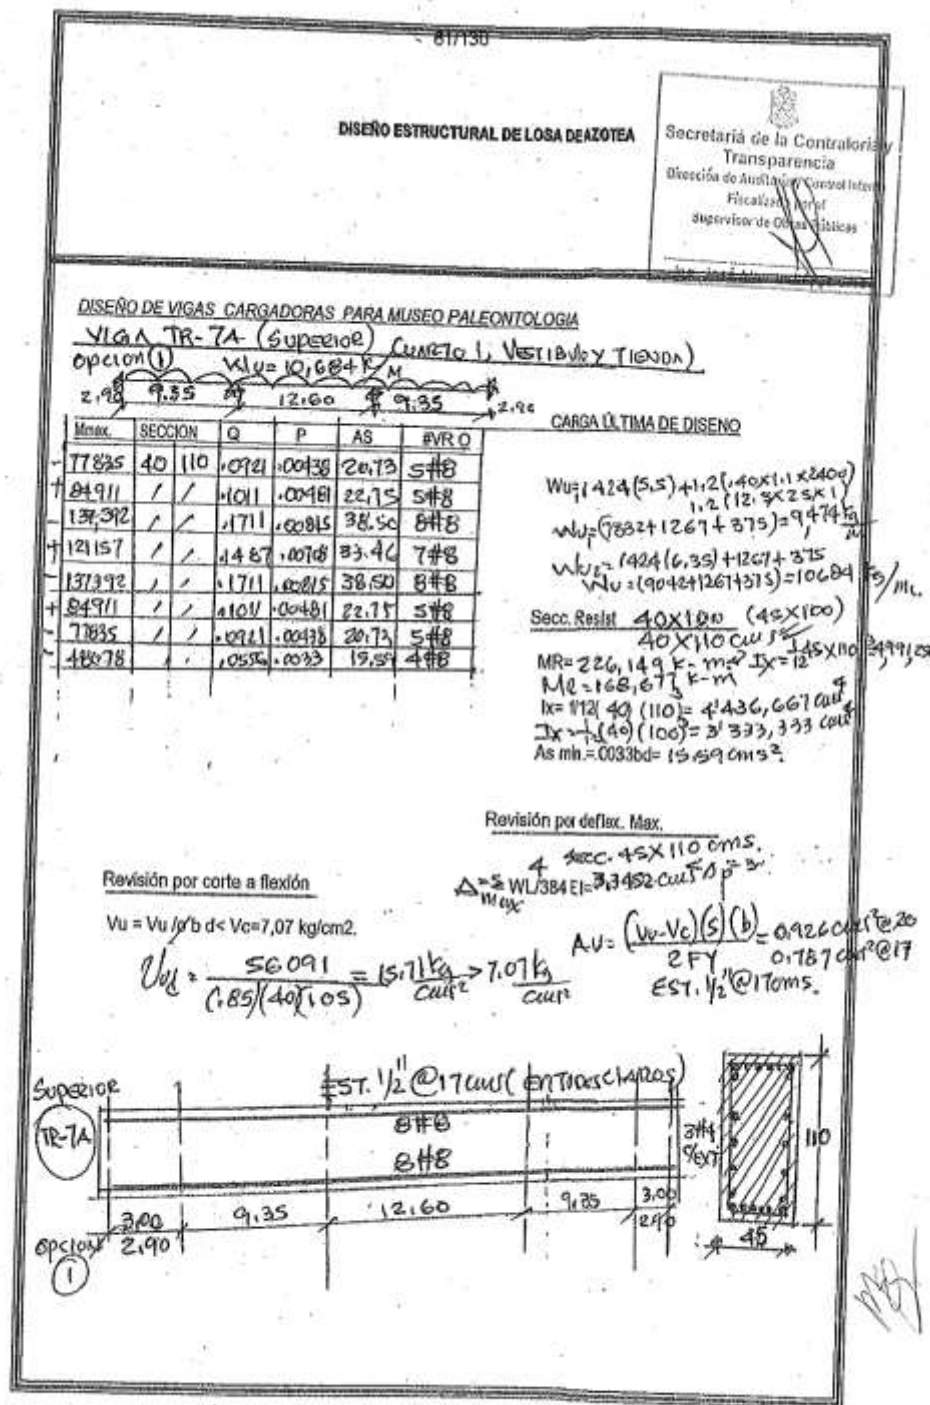 81/130
DISEÑO ESTRUCTURAL DE LOSA DE AZOTEA
Secretaría de la Contraloría y
Transparencia
Dirección de Auditoría y Control Interno
Fiscalizado por el
Supervisor de Obras Públicas
DISEÑO DE VIGAS CARGADORAS PARA MUSEO PALEONTOLOGIA
VIGA TR-7A (SUPERIOR) CUARTO 1, VESTIBULO Y TIENDA)
OPCION (1) WU= 10,684 K/M
2.90 9.35 12.60 9.35 2.90
Mmax. SECCION Q P AS #VR O
- 77835 40 110 .0921 .00438 20.73 5#8
+ 84911 / / .1011 .00481 22.75 5#8
- 137,392 / / .1711 .00815 38.50 8#8
+ 121157 / / .1487 .00708 33.46 7#8
- 137392 / / .1711 .00815 38.50 8#8
+ 84911 / / .1011 .00481 22.75 5#8
- 77835 / / .0921 .00438 20.73 5#8
- 48078 / / .0556 .0033 15.59 4#8
CARGA ÚLTIMA DE DISENO
WU=1424(5.5)+1.2(.40x1.1x2400)
1.2(12.5x25x1)
WU1=(7832+1267+375)=9,474 Kg/M
WU2=1424(6.35)+1267+375
WU=(9042+1267+375)=10684 Kg/ML.
Secc. Resist 40X100 (45X100)
40X110 CMS
MR=226,149 K-M IX=1/12 45X110³=499,125
MR=168,677 K-M
Ix= 1/12( 40) (110)= 4'436,667 CM4
IX=1/12(40)(100)³=3'333,333 CM4
As min.=.0033bd= 15.59 CMS².
Revisión por deflex. Max.
4 SECC. 45X110 CMS.
Δmax=5 WL/384 EI=3.3452 CMS
Revisión por corte a flexión
Vu = Vu /o'b d< Vc=7,07 kg/cm2.
Vu = 56091 / (.85)(40)(105) = 15.71 Kg/CM² > 7.07 Kg/CM²
AV= (VU-VC)(S)(b) / 2FY = 0.926 CM²@20
0.787 CM²@17
EST. 1/2"@17CMS.
SUPERIOR
TR-7A
EST. 1/2" @17 CMS( EN TODOS CLAROS)
8#8
8#8
3#4
110
45
3.00 9.35 12.60 9.35 3.00
2.90 2.90
OPCION
(1)